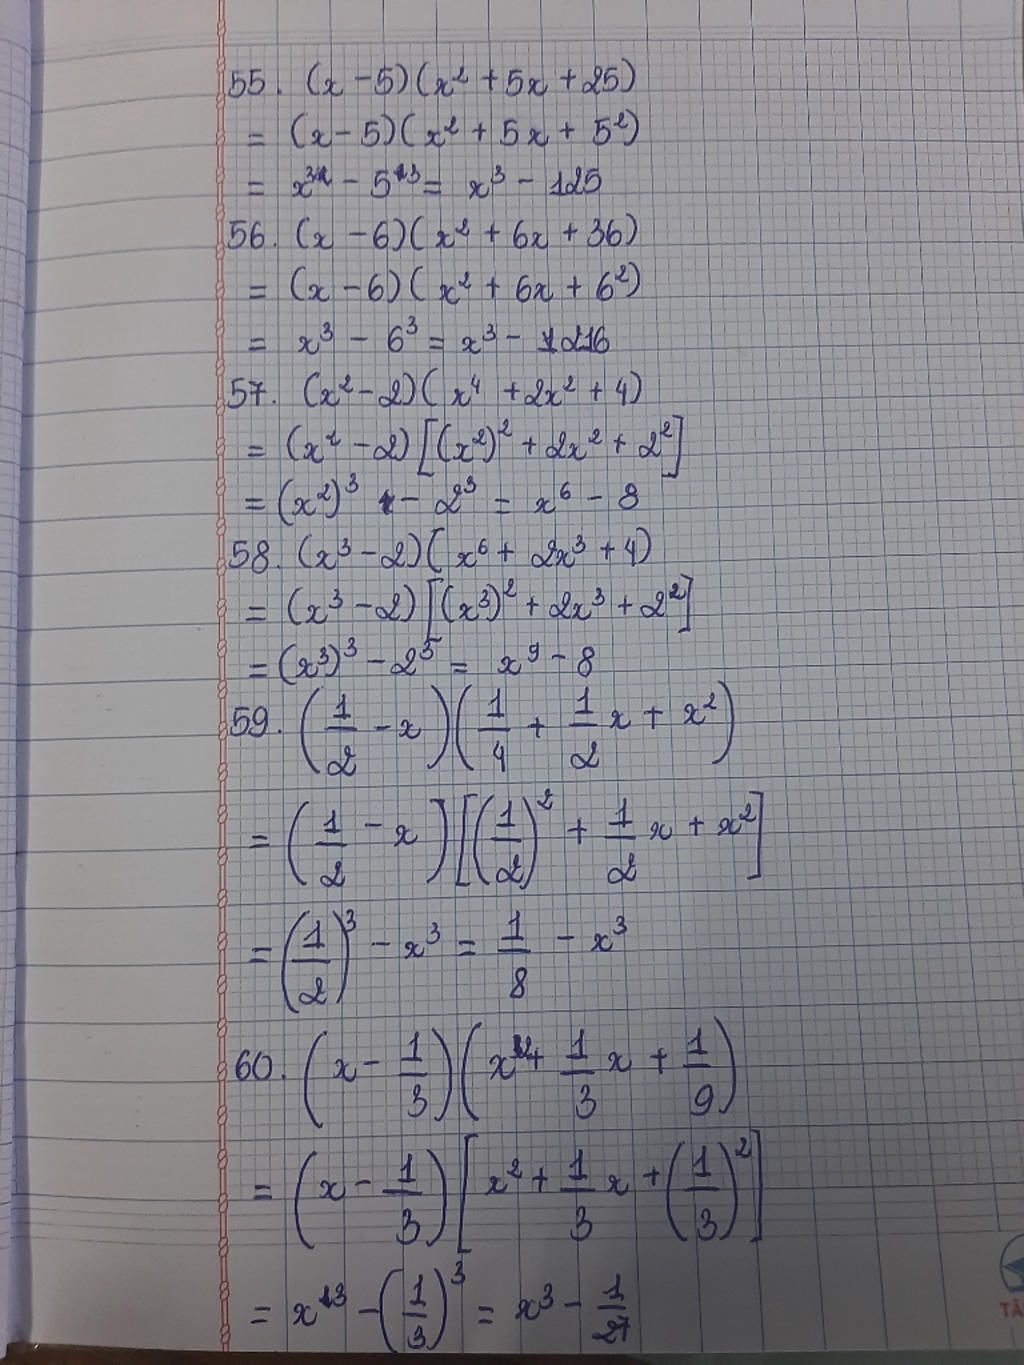 55. (x - 5)(x² + 5x + 25)
= (x - 5)(x² + 5x + 5²)
= x³ - 5³ = x³ - 125
56. (x - 6)(x² + 6x + 36)
= (x - 6)(x² + 6x + 6²)
= x³ - 6³ = x³ - 216
57. (x² - 2)(x⁴ + 2x² + 4)
= (x² - 2)[(x²)² + 2x² + 2²]
= (x²)³ - 2³ = x⁶ - 8
58. (x³ - 2)(x⁶ + 2x³ + 4)
= (x³ - 2)[(x³)² + 2x³ + 2²]
= (x³)³ - 2³ = x⁹ - 8
59. (1/2 - x)(1/4 + 1/2 x + x²)
= (1/2 - x)[(1/2)² + 1/2 x + x²]
= (1/2)³ - x³ = 1/8 - x³
60. (x - 1/3)(x² + 1/3 x + 1/9)
= (x - 1/3)[x² + 1/3 x + (1/3)²]
= x³ - (1/3)³ = x³ - 1/27